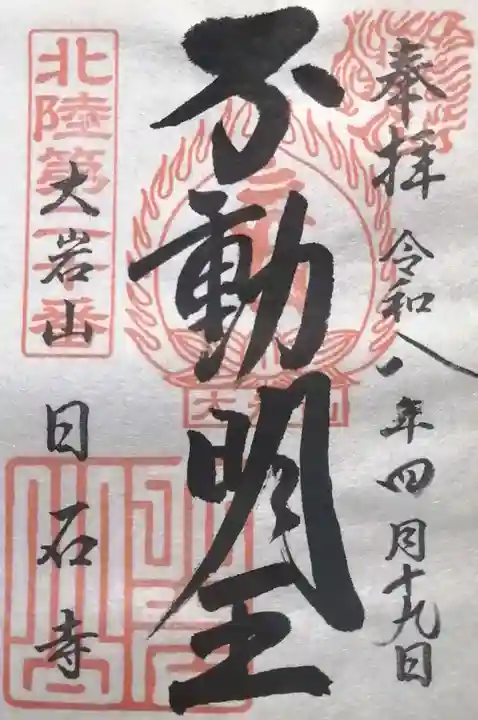 奉拝 令和八年四月十九日
不動明王
大岩山 日石寺
北陸第二番
大岩山